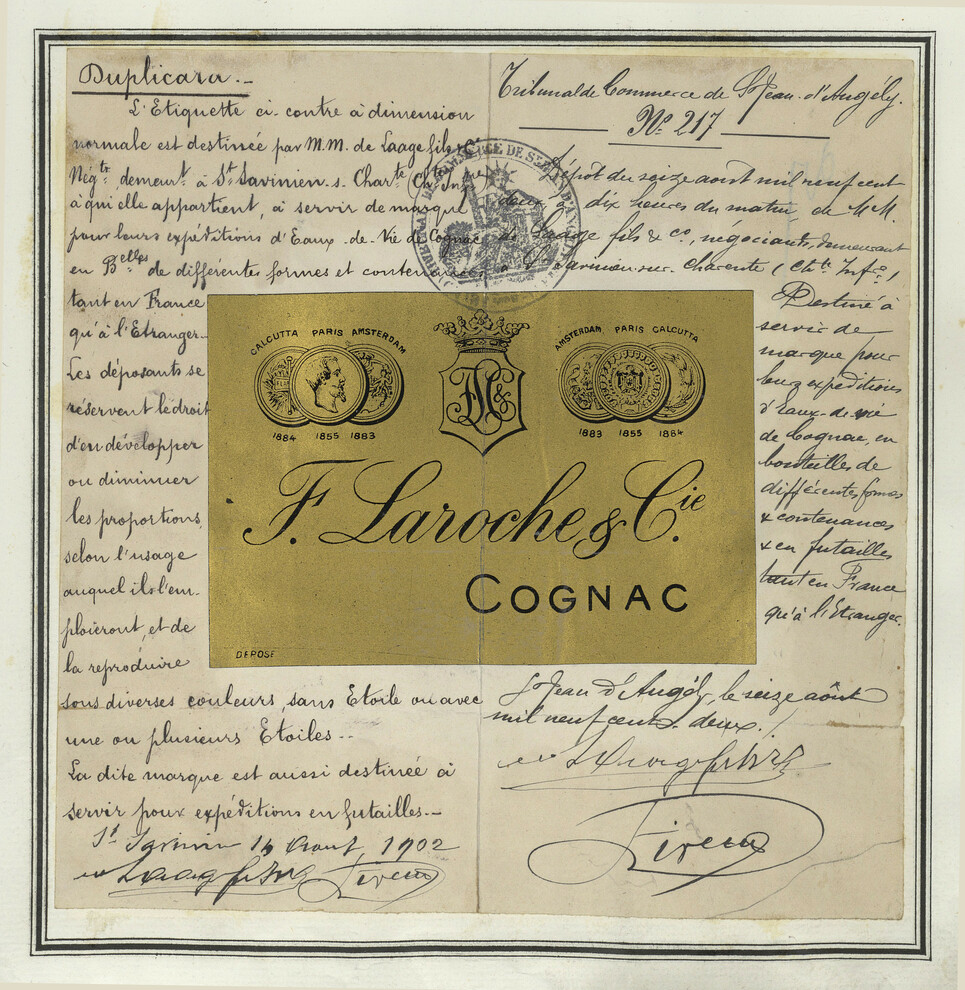 Duplicata.-
L'Etiquette ci-contre à dimension
normale est destinée par M.M. de Laage fils & Cie
Négts, demeurt à St Savinien-s-Charte Ch. Infre
à qui elle appartient, à servir de marque
pour leurs expéditions d'Eaux-de-Vie de Cognac
en Belles de différentes formes et contenances
tant en France
qu'à l'Etranger.
Les déposants se
réservent le droit
d'en développer
ou diminuer
les proportions,
selon l'usage
auquel ils l'em-
ploieront, et de
la reproduire
sous diverses couleurs, sans Etoile ou avec
une ou plusieurs Etoiles.-
La dite marque est aussi destinée à
servir pour expéditions en futailles.-
St Savinien 14 Aout 1902
Tribunal de Commerce de St Jean-d'Angély.
No 217
Dépôt du seize aout mil neuf cent
deux à dix heures du matin, de M M.
de Laage fils & Co, négociants, demeurant
à St Savinien-sur-Charente (Chte Infre)
Destiné à
servir de
marque pour
leurs expéditions
d'Eaux-de-vie
de Cognac, en
bouteilles de
différentes formes
& contenances
& en futailles
tant en France
qu'à l'Etranger.
St Jean d'Angély, le seize août
mil neuf cent deux./.
CALCUTTA PARIS AMSTERDAM
1884 1855 1883
AMSTERDAM PARIS CALCUTTA
1883 1855 1884
F. Laroche & Cie.
COGNAC
DEPOSÉ